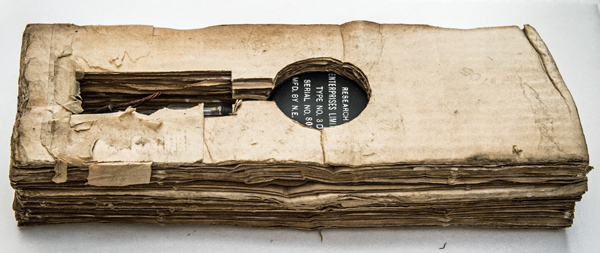 RESEARCH
ENTERPRISES LIMI
TYPE NO. 3D
SERIAL NO. 80
MFD. BY N.E.